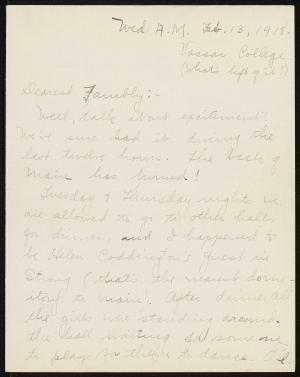 Wed. A.M. Feb. 13, 1918.
Vassar College
(What's left of it!)
Dearest Fambly:-
Well, talk about excitement!
We've sure had it during the
last twelve hours. The back of
Main has burned!
Tuesday & Thursday nights we
are allowed to go to other halls
for dinner, and I happened to
be Helen Coddington's guest in
Strong (that's the nearest dorm-
itory to Main). After dinner all
the girls were standing around
the hall waiting for someone
to play for them to dance.